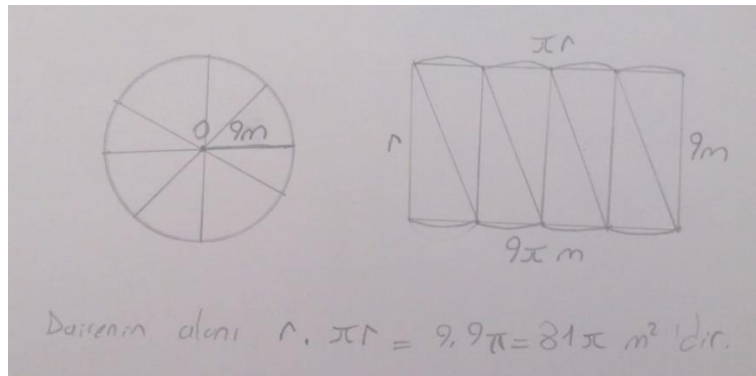 O 9m
πr
r
9m
9π m
Dairenin alanı r. πr = 9.9π = 81π m² 'dir.